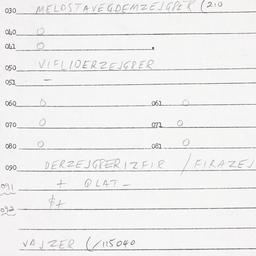 030 MELDSTAVEGDEMZEJGPER (210
040 0
041 0
050 VIFLIDERZEJGPER
051 -
060 0 061 0
070 0 071 0
080 0 081 0
090 DERZEJGPERIZFIR / FIRAZEJ
091 + QLAT -
092 $+
VAJZER (/115040